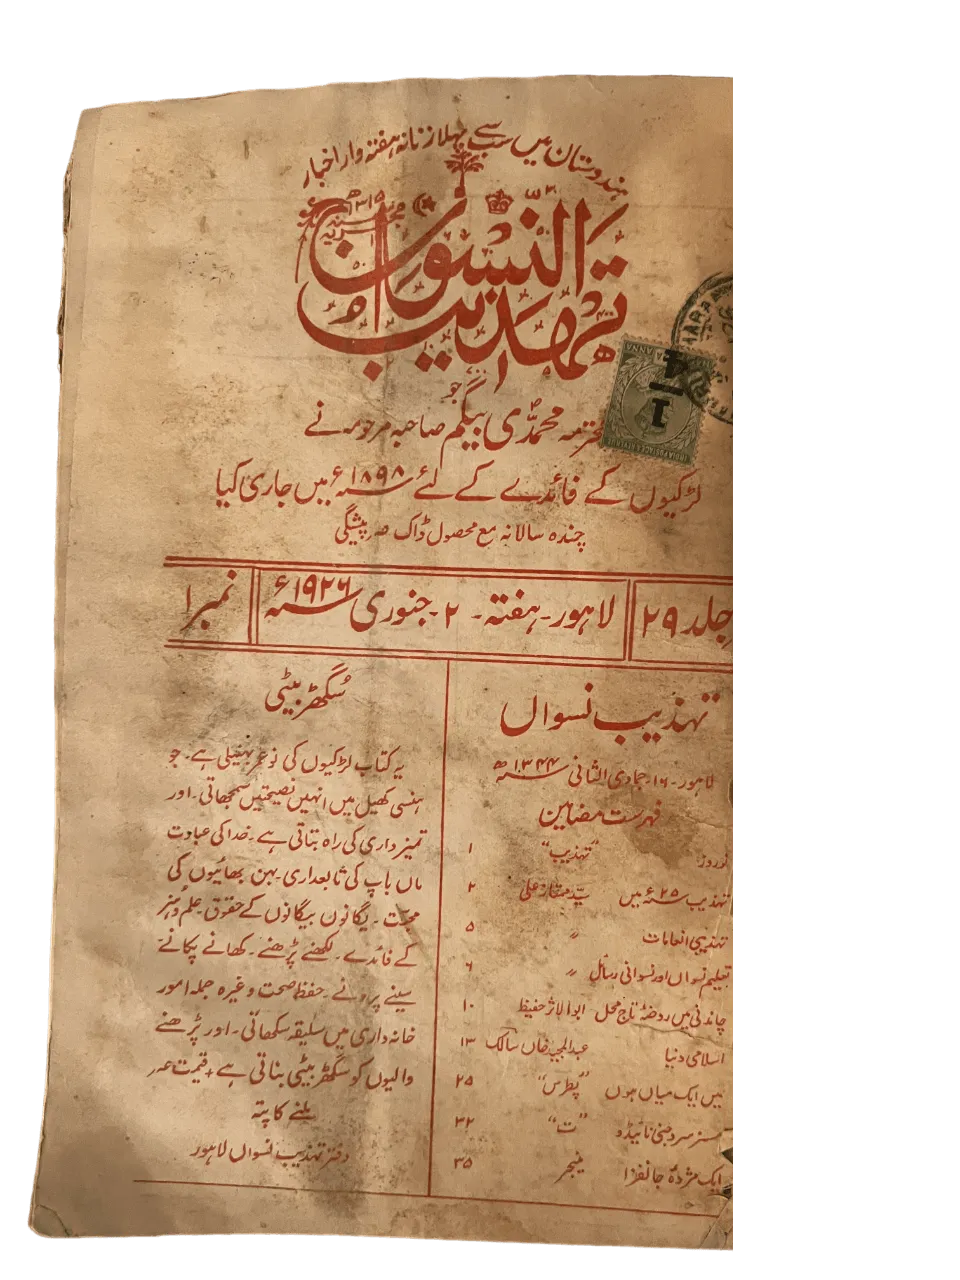 ہندوستان میں سب سے پہلا زنانہ ہفتہ وار اخبار
تہذیب النسواں
جو
محمدی بیگم صاحبہ مرحومہ نے
لڑکیوں کے فائدے کے لئے ۱۸۹۸ء میں جاری کیا
چندہ سالانہ مع محصول ڈاک پیشگی
جلد ۲۹ لاہور۔ ہفتہ۔ ۲۔ جنوری ۱۹۲۶ء نمبر ۱
تہذیب نسواں
لاہور۔ ۱۶۔ جمادی الثانی ۱۳۴۴ھ
فہرست مضامین
نوروز "تہذیب" ۱
تہذیب ۲۵ء میں سید ممتاز علی ۲
تہذیبی انعامات " ۵
تعلیم نسواں اور نسوانی رسائل " ۶
چاندنی میں روضۂ تاج محل ابوالاثر حفیظ ۱۰
اسلامی دنیا عبدالمجید خاں سالک ۱۳
میں ایک میاں ہوں "پطرس" ۲۵
مسز سروجنی نائیڈو "ت" ۳۲
ایک مژدہ جانفزا منیجر ۳۵
سگھڑ بیٹی
یہ کتاب لڑکیوں کی نوعمر سہیلی ہے۔ جو
ہنسی کھیل میں انہیں نصیحتیں سمجھاتی۔ اور
تمیزداری کی راہ بتاتی ہے۔ خدا کی عبادت
ماں باپ کی تابعداری۔ بہن بھائیوں کی
محبت۔ یگانوں بیگانوں کے حقوق۔ علم و ہنر
کے فائدے۔ لکھنے پڑھنے۔ کھانے پکانے
سینے پرونے۔ حفظ صحت وغیرہ جملہ امور
خانہ داری میں سلیقہ سکھاتی۔ اور پڑھنے
والیوں کو سگھڑ بیٹی بناتی ہے۔ قیمت عہ
ملنے کا پتہ
دفتر تہذیب نسواں لاہور